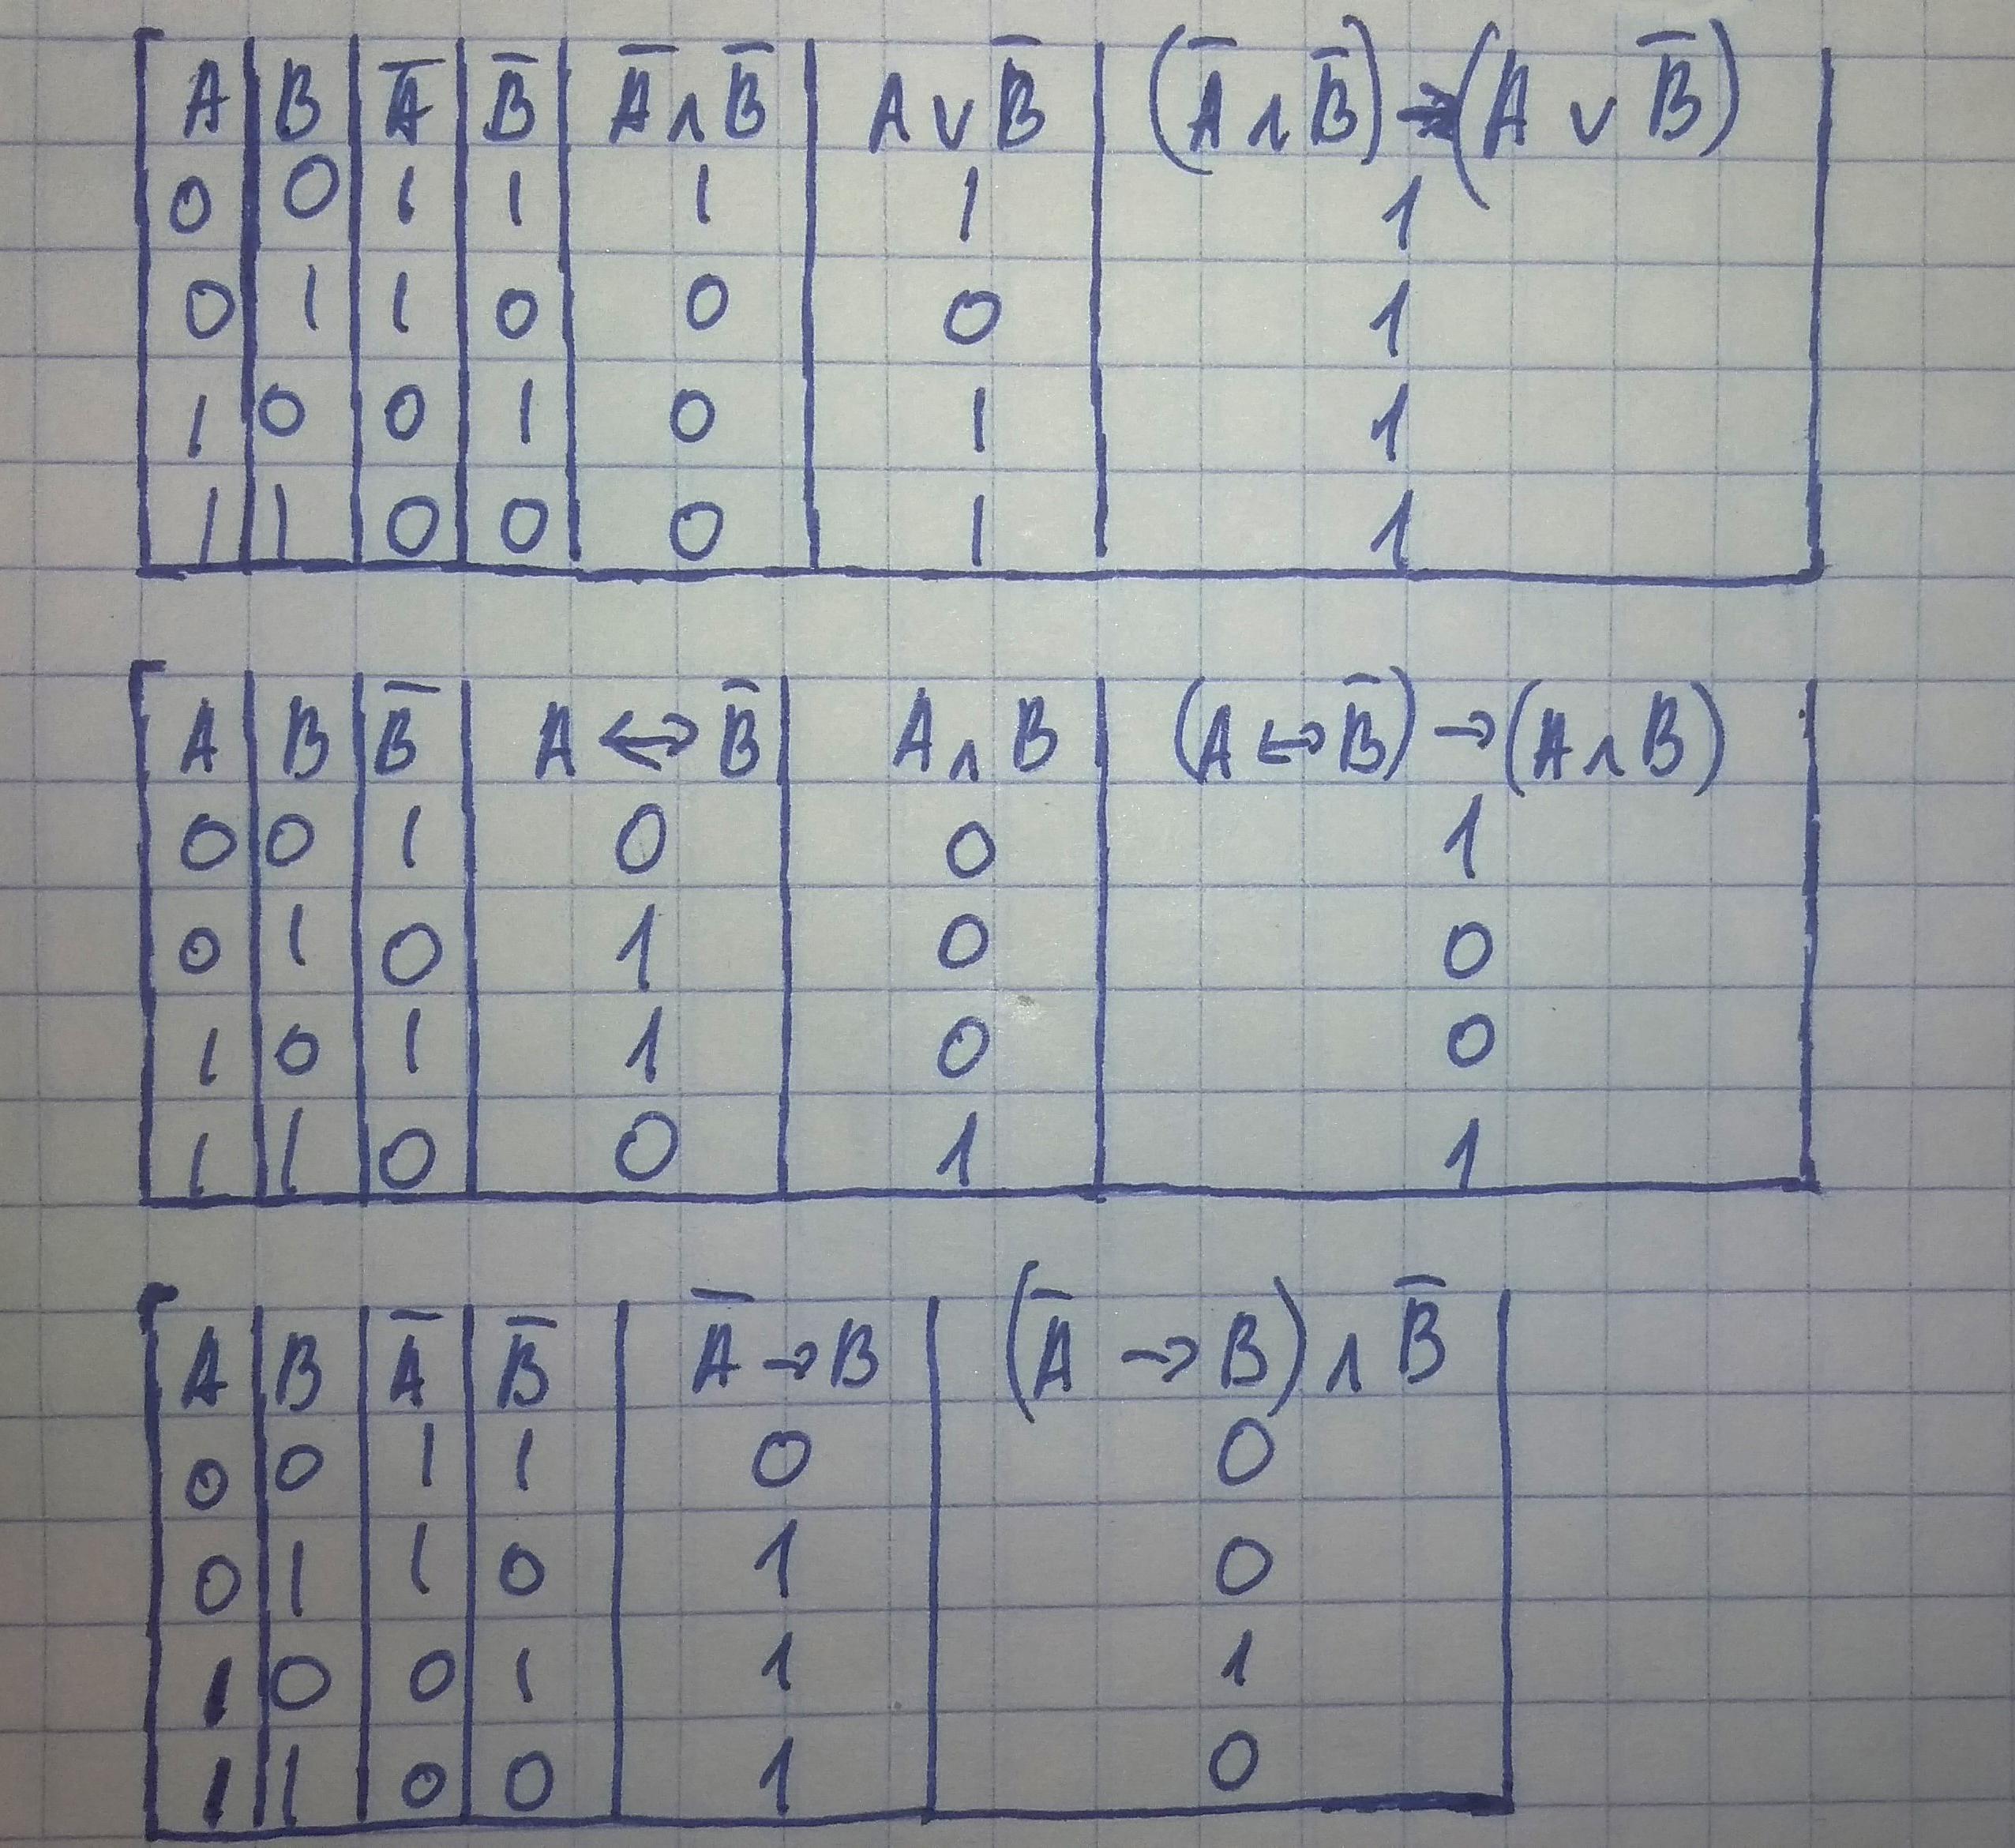 A | B | A̅ | B̅ | A̅ ∧ B̅ | A ∨ B̅ | (A̅ ∧ B̅) → (A ∨ B̅)
0 | 0 | 1 | 1 | 1 | 1 | 1
0 | 1 | 1 | 0 | 0 | 0 | 1
1 | 0 | 0 | 1 | 0 | 1 | 1
1 | 1 | 0 | 0 | 0 | 1 | 1
A | B | B̅ | A ↔ B̅ | A ∧ B | (A ↔ B̅) → (A ∧ B)
0 | 0 | 1 | 0 | 0 | 1
0 | 1 | 0 | 1 | 0 | 0
1 | 0 | 1 | 1 | 0 | 0
1 | 1 | 0 | 0 | 1 | 1
A | B | A̅ | B̅ | A̅ → B | (A̅ → B) ∧ B̅
0 | 0 | 1 | 1 | 0 | 0
0 | 1 | 1 | 0 | 1 | 0
1 | 0 | 0 | 1 | 1 | 1
1 | 1 | 0 | 0 | 1 | 0